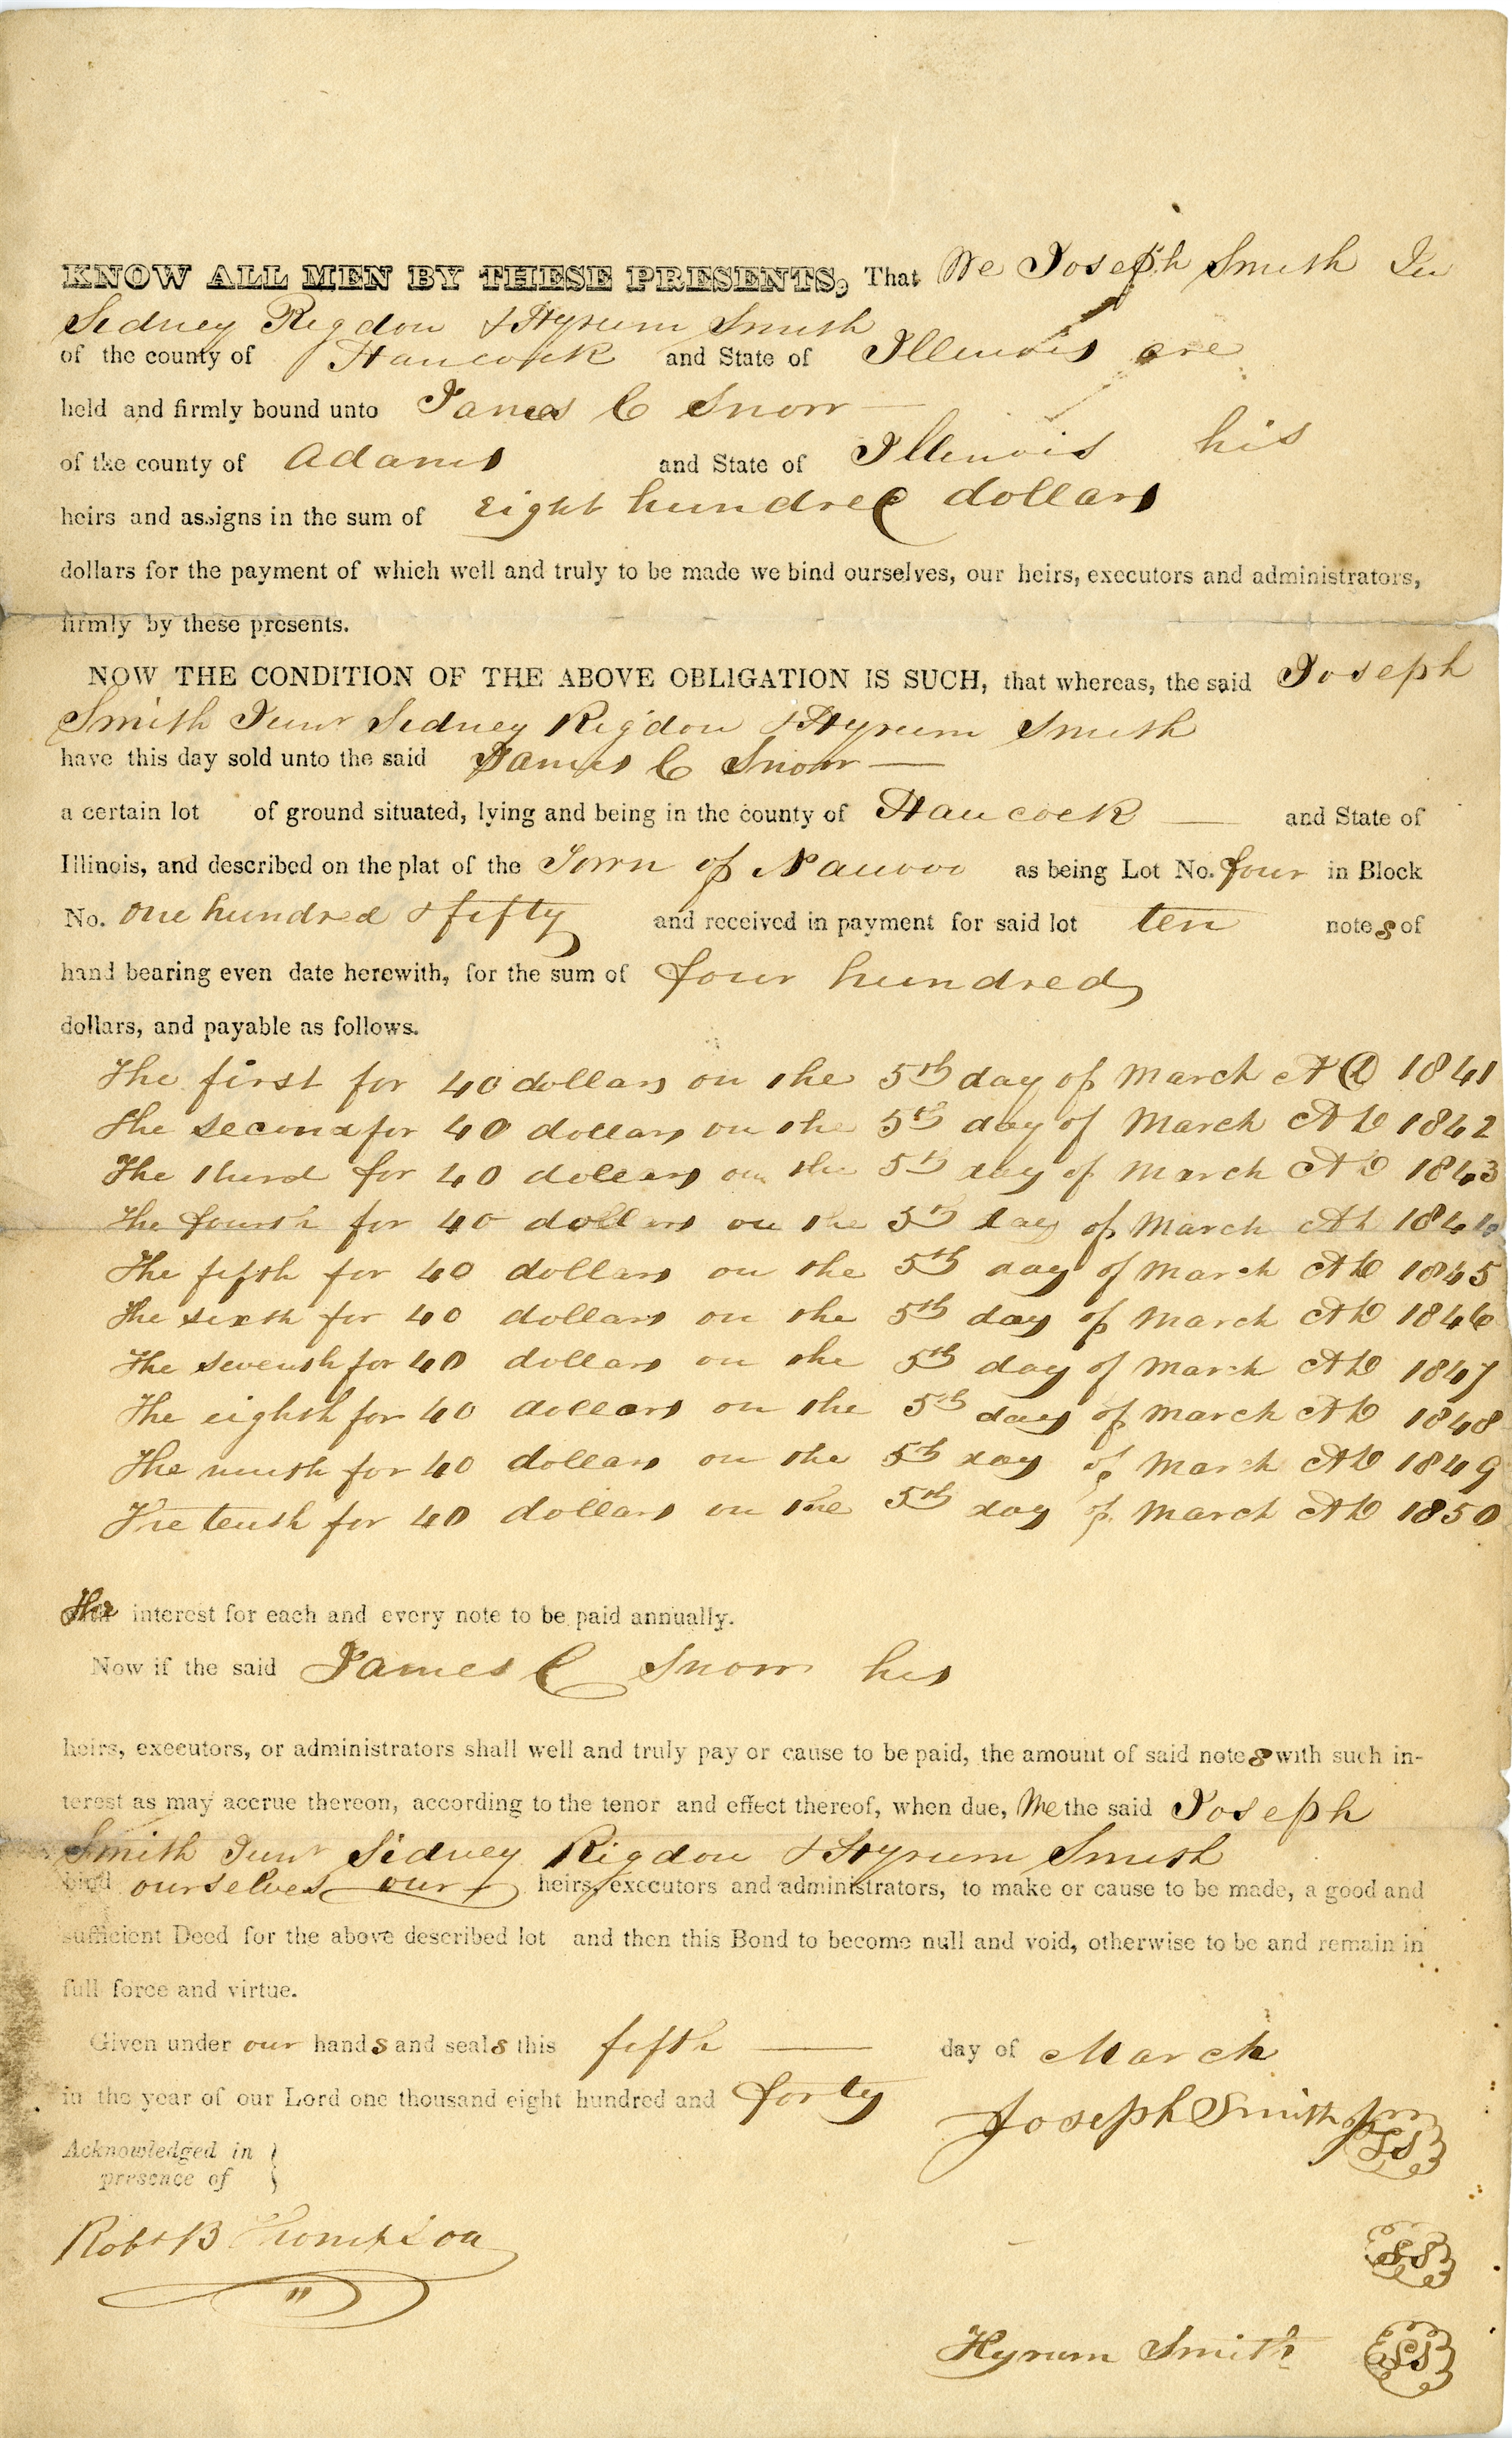 KNOW ALL MEN BY THESE PRESENTS, That We Joseph Smith Jun
Sidney Rigdon & Hyrum Smith
of the county of Hancock and State of Illinois are
held and firmly bound unto James C Snow —
of the county of Adams and State of Illinois his
heirs and assigns in the sum of Eight hundred dollars
dollars for the payment of which well and truly to be made we bind ourselves, our heirs, executors and administrators,
firmly by these presents.
NOW THE CONDITION OF THE ABOVE OBLIGATION IS SUCH, that whereas, the said Joseph
Smith Junr Sidney Rigdon & Hyrum Smith
have this day sold unto the said James C Snow —
a certain lot of ground situated, lying and being in the county of Hancock — and State of
Illinois, and described on the plat of the Town of Nauvoo as being Lot No. four in Block
No. one hundred & fifty and received in payment for said lot ten notes of
hand bearing even date herewith, for the sum of four hundred
dollars, and payable as follows.
The first for 40 dollars on the 5th day of March AD 1841
The second for 40 dollars on the 5th day of March AD 1842
The third for 40 dollars on the 5th day of March AD 1843
The fourth for 40 dollars on the 5th day of March AD 1844
The fifth for 40 dollars on the 5th day of March AD 1845
The sixth for 40 dollars on the 5th day of March AD 1846
The seventh for 40 dollars on the 5th day of March AD 1847
The eighth for 40 dollars on the 5th day of March AD 1848
The ninth for 40 dollars on the 5th day of March AD 1849
The tenth for 40 dollars on the 5th day of March AD 1850
The interest for each and every note to be paid annually.
Now if the said James C Snow his
heirs, executors, or administrators shall well and truly pay or cause to be paid, the amount of said notes with such in-
terest as may accrue thereon, according to the tenor and effect thereof, when due, We the said Joseph
Smith Junr Sidney Rigdon & Hyrum Smith
bind ourselves our heirs, executors and administrators, to make or cause to be made, a good and
sufficient Deed for the above described lot and then this Bond to become null and void, otherwise to be and remain in
full force and virtue.
Given under our hands and seals this fifth — day of March
in the year of our Lord one thousand eight hundred and forty
Joseph Smith Jr LS
Acknowledged in
presence of
Robt B Thompson
LS
Hyrum Smith LS